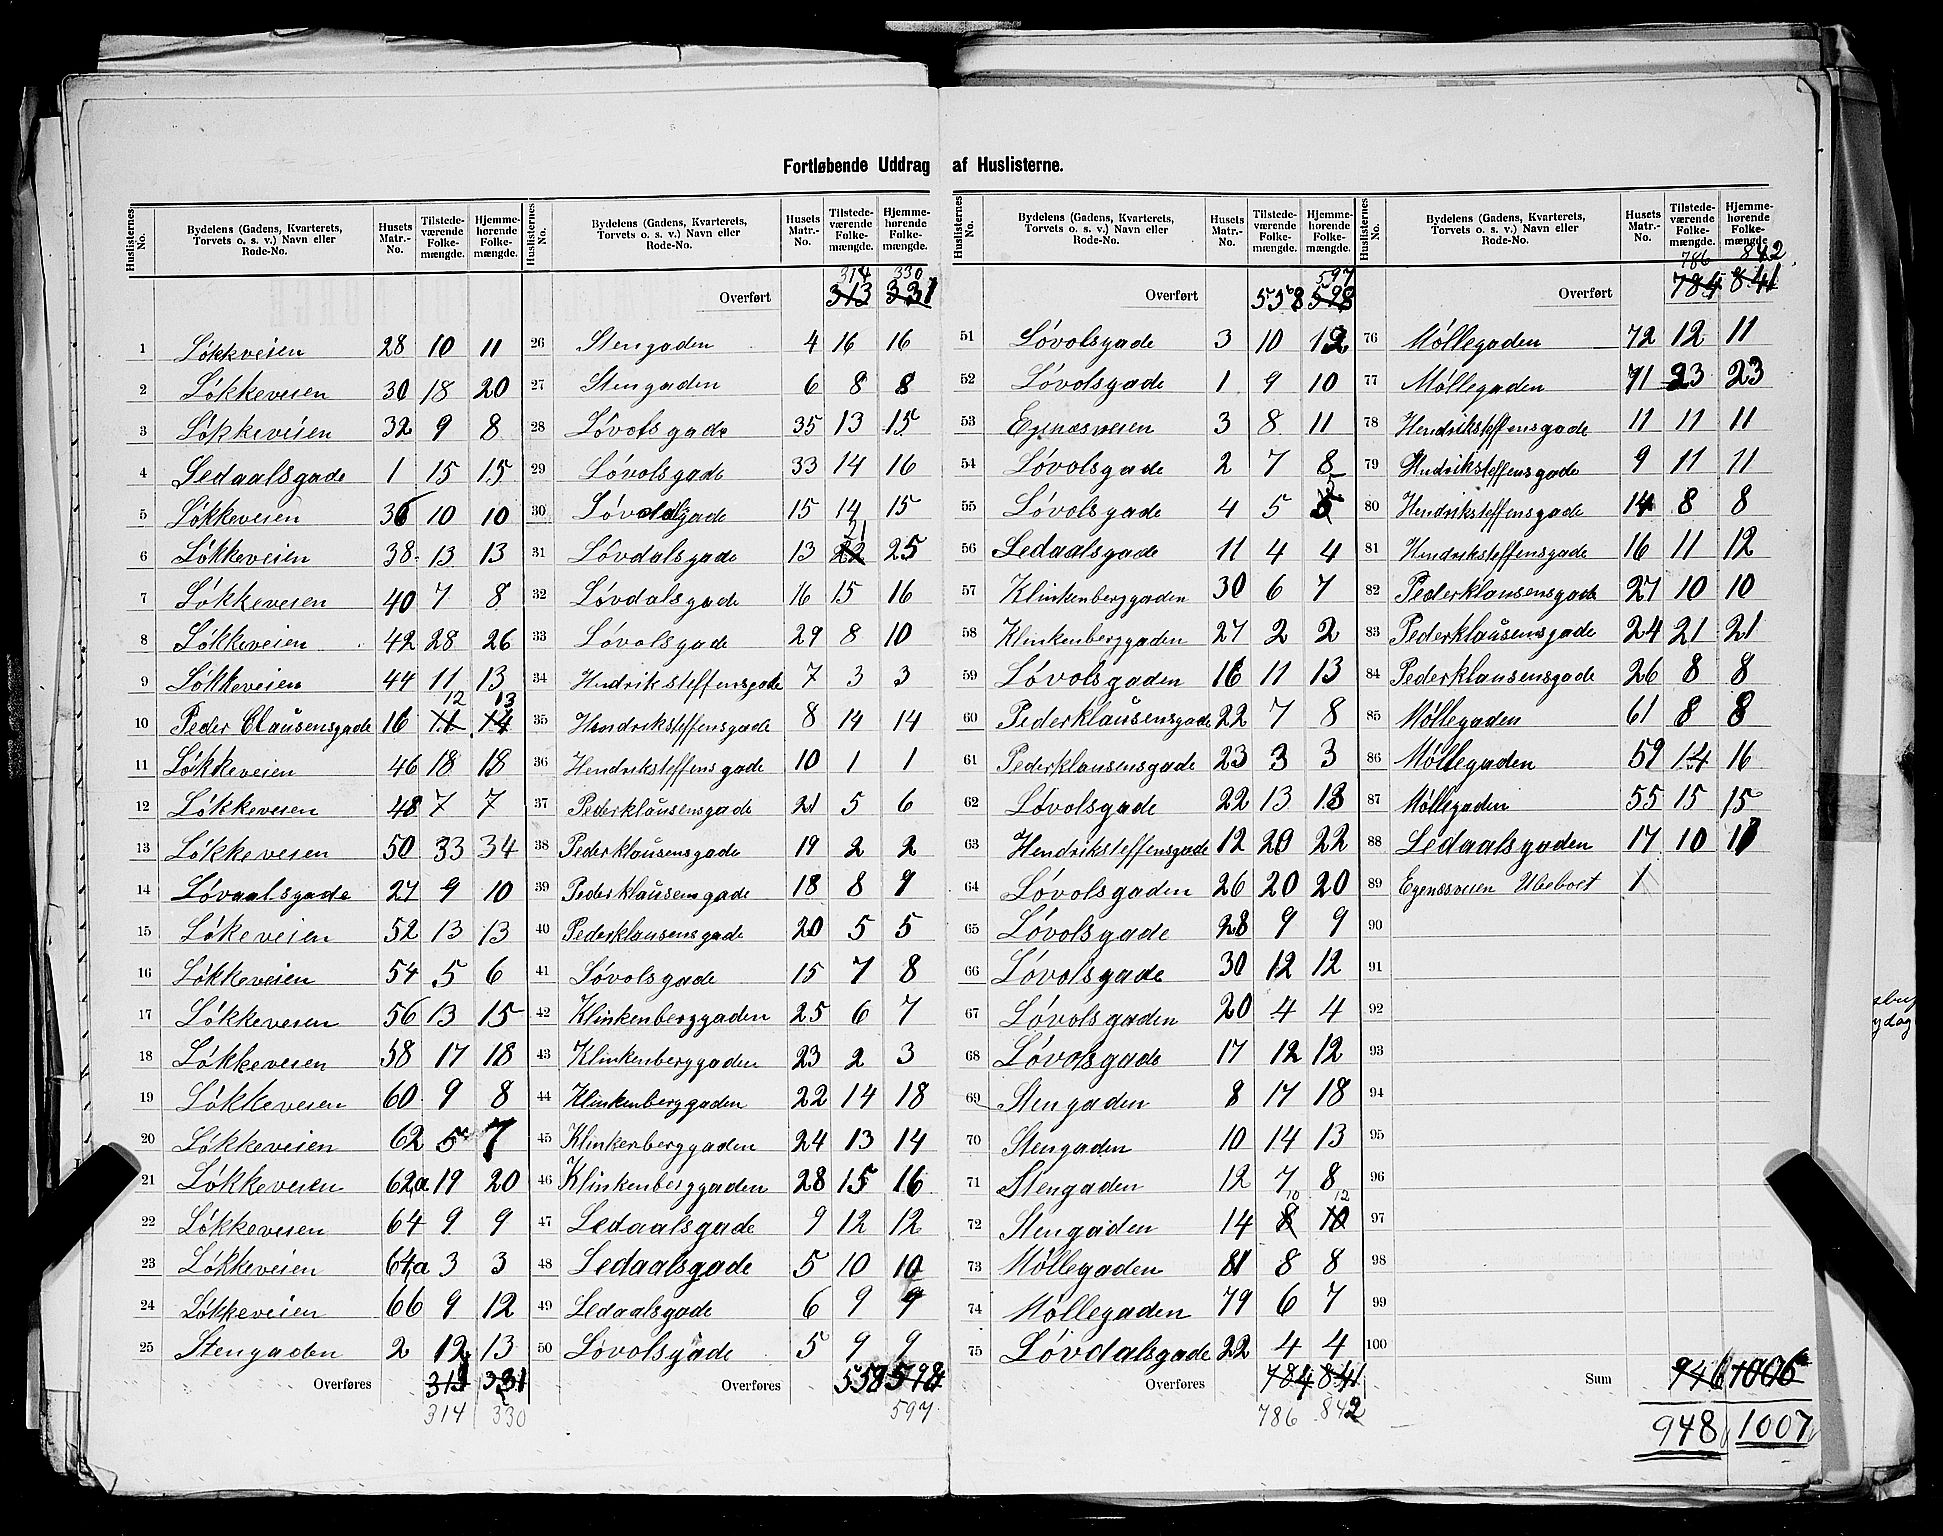 Fortløbende Uddrag af Huslisterne.
Huslisternes No. | Bydelens (Gadens, Kvarterets, Torvets o. s. v.) Navn eller Rode-No. | Husets Matr.-No. | Tilstedeværende Folkemængde. | Hjemmehørende Folkemængde.
1 Løkkveien 28 10 11
2 Løkkeveien 30 18 20
3 Løkkeveien 32 9 8
4 Ledaalsgade 1 15 15
5 Løkkeveien 36 10 10
6 Løkkeveien 38 13 13
7 Løkkeveien 40 7 8
8 Løkkeveien 42 28 26
9 Løkkeveien 44 11 13
12 13
10 Peder Claüsensgade 16 11 14
11 Løkkeveien 46 18 18
12 Løkkeveien 48 7 7
13 Løkkeveien 50 33 34
14 Løvaalsgade 27 9 10
15 Løkeveien 52 13 13
16 Løkkeveien 54 5 6
17 Løkkeveien 56 13 15
18 Løkkeveien 58 17 18
19 Løkkeveien 60 9 8
20 Løkkeveien 62 5 7
21 Løkkeveien 62a 19 20
22 Løkkeveien 64 9 9
23 Løkkeveien 64a 3 3
24 Løkkeveien 66 9 12
25 Stengaden 2 12 13
Overføres 313 331
314 330
Huslisternes No. | Bydelens (Gadens, Kvarterets, Torvets o. s. v.) Navn eller Rode-No. | Husets Matr.-No. | Tilstedeværende Folkemængde. | Hjemmehørende Folkemængde.
314 330
Overført 313 331
26 Stengaden 4 16 16
27 Stengaden 6 8 8
28 Løvolsgade 35 13 15
29 Løvolsgade 33 14 16
30 Løvdalsgade 15 14 15
21
31 Løvdalsgade 13 22 25
32 Løvdalsgade 16 15 16
33 Løvolsgade 29 8 10
34 Hndriksteffensgade 7 3 3
35 Hendriksteffensgade 8 14 14
36 Hendriksteffensgade 10 1 1
37 Pederklaüsensgade 21 5 6
38 Pederklaüsensgade 19 2 2
39 Pederklaüsensgade 18 8 9
40 Pederklausensgade 20 5 5
41 Løvolsgade 15 7 8
42 Klinkenberggaden 25 6 7
43 Klinkenberggaden 23 2 3
44 Klinkenberggaden 22 14 18
45 Klinkenberggaden 24 13 14
46 Klinkenberggaden 28 15 16
47 Ledaalsgade 9 12 12
48 Ledaalsgade 5 10 10
49 Ledaalsgade 6 9 9
50 Løvolsgade 5 9 9
Overføres 558 598
597
Huslisternes No. | Bydelens (Gadens, Kvarterets, Torvets o. s. v.) Navn eller Rode-No. | Husets Matr.-No. | Tilstedeværende Folkemængde. | Hjemmehørende Folkemængde.
597
Overført 558 598
51 Løvolsgade 3 10 12
52 Løvolsgade 1 9 10
53 Egenæsveien 3 8 11
54 Løvolsgade 2 7 8
5
55 Løvolsgade 4 5
56 Ledaalsgade 11 4 4
57 Klinkenberggaden 30 6 7
58 Klinkenberggaden 27 2 2
59 Løvolsgaden 16 11 13
60 Pederklaüsensgade 22 7 8
61 Pederklausensgade 23 3 3
62 Løvolsgade 22 13 13
63 Hendriksteffensgade 12 20 22
64 Løvolsgaden 26 20 20
65 Løvolsgade 28 9 9
66 Løvolsgade 30 12 12
67 Løvolsgaden 20 4 4
68 Løvolsgade 17 12 12
69 Stengaden 8 17 18
70 Stengaden 10 14 13
71 Stengaden 12 7 8
10 12
72 Stengaden 14 8 10
73 Møllegaden 81 8 8
74 Møllegaden 79 6 7
75 Løvdalsgade 22 4 4
784 841
786 842
Huslisternes No. | Bydelens (Gadens, Kvarterets, Torvets o. s. v.) Navn eller Rode-No. | Husets Matr.-No. | Tilstedeværende Folkemængde. | Hjemmehørende Folkemængde.
786 842
Overført 784 841
76 Møllegaden 72 12 11
77 Møllegaden 71 23 23
78 Hendriksteffensgade 11 11 11
79 Hndriksteffensgade 9 11 11
80 Hendriksteffensgade 14 8 8
81 Hendriksteffensgade 16 11 12
82 Pederklausensgade 27 10 10
83 Pederklaüsensgade 24 21 21
84 Pederklausensgade 26 8 8
85 Møllegaden 61 8 8
86 Møllegaden 59 14 16
87 Møllegaden 55 15 15
88 Ledaalsgaden 17 10
89 Egenæsveien Ubeboet 1
90
91
92
93
94
95
96
97
98
99
100
Sum 946 1006
948 1007